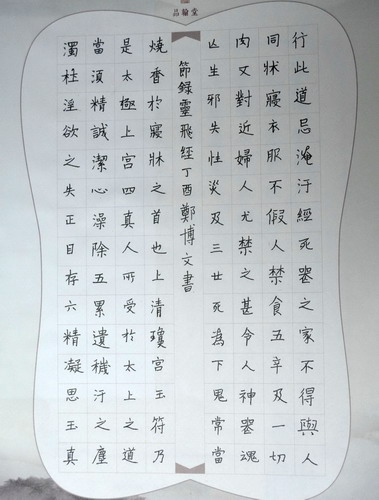 品翰堂
行此道忌淹汙經死喪之家不得與人
同牀寢衣服不假人禁食五辛及一切
肉又對近婦人尤禁之甚令人神喪魂
亾生邪失性災及三世死爲下鬼常當
節錄靈飛經丁酉鄭博文書
燒香於寢牀之首也上清瓊宮玉符乃
是太極上宮四真人所受於太上之道
當須精誠潔心澡除五累遺穢汙之塵
濁杜淫欲之失正目存六精凝思玉真